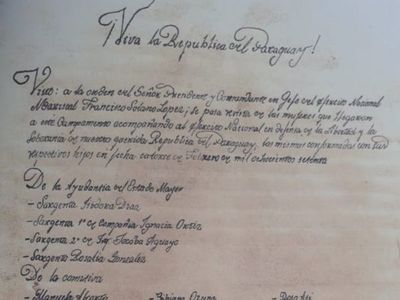 ¡Viva la Republica del Paraguay!
Visto: a la orden del Señor Presidente y Comandante en Gefe del Ejercito Nacional
Mariscal Francisco Solano Lopez; se pasa revista de las mujeres que llegaron
a este Campamento acompañando al Ejercito Nacional en defensa de la libertad y la
Soberania de nuestra querida Republica del Paraguay, las mismas conformadas con sus
respectivos hijos en fecha catorce de Febrero de mil ochocientos setenta
De la Ayudantia del Estado Mayor
- Sargenta Isidora Diaz
- Sargenta 1ª de Compañia Ignacia Ortiz
- Sargenta 2ª de Jacoba Aguayo
- Sargenta Rosalia Gonzalez
De la comitiva